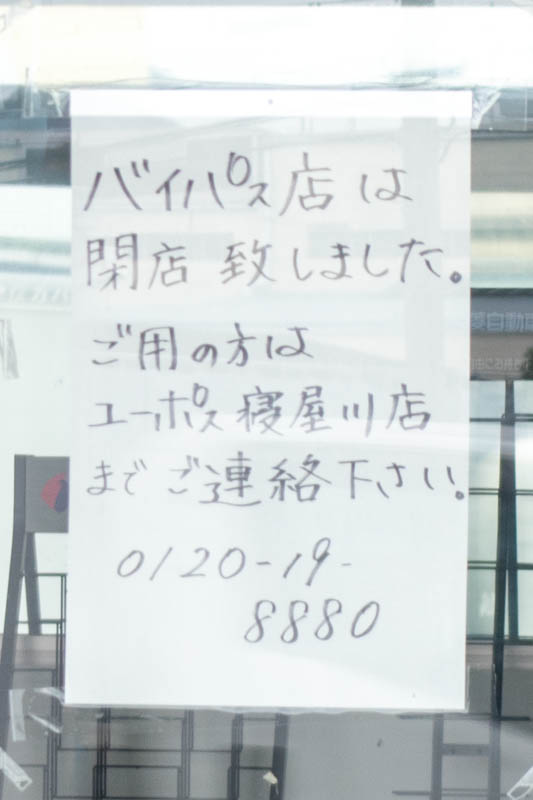 バイパス店は
閉店 致しました。
ご用の方は
ユーポス寝屋川店
までご連絡下さい。
0120-19-
8880
自動